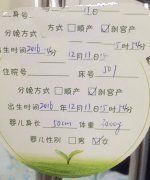 身号
分娩方式 □顺产 ☑剖宫产
出生时间2016年12月11日5时54分
住院号 床号 501
分娩方式 □顺产 ☑剖宫产
出生时间2016年12月11日5时54分
婴儿身长 50cm 体重
婴儿性别 □男 ☑女